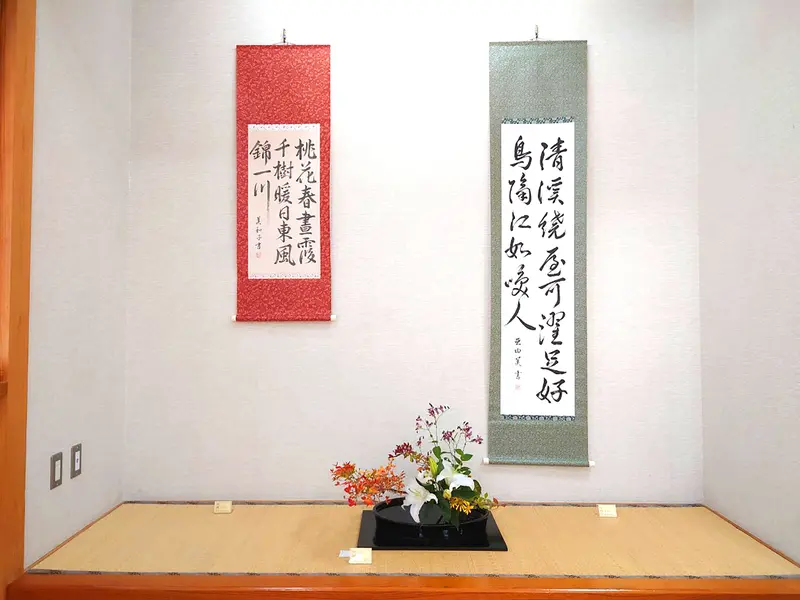 清溪繞屋可濯足好
鳥隔江如喚人
亜由美書
桃花春晝霞
千樹暖日東風
錦一川
美和子書